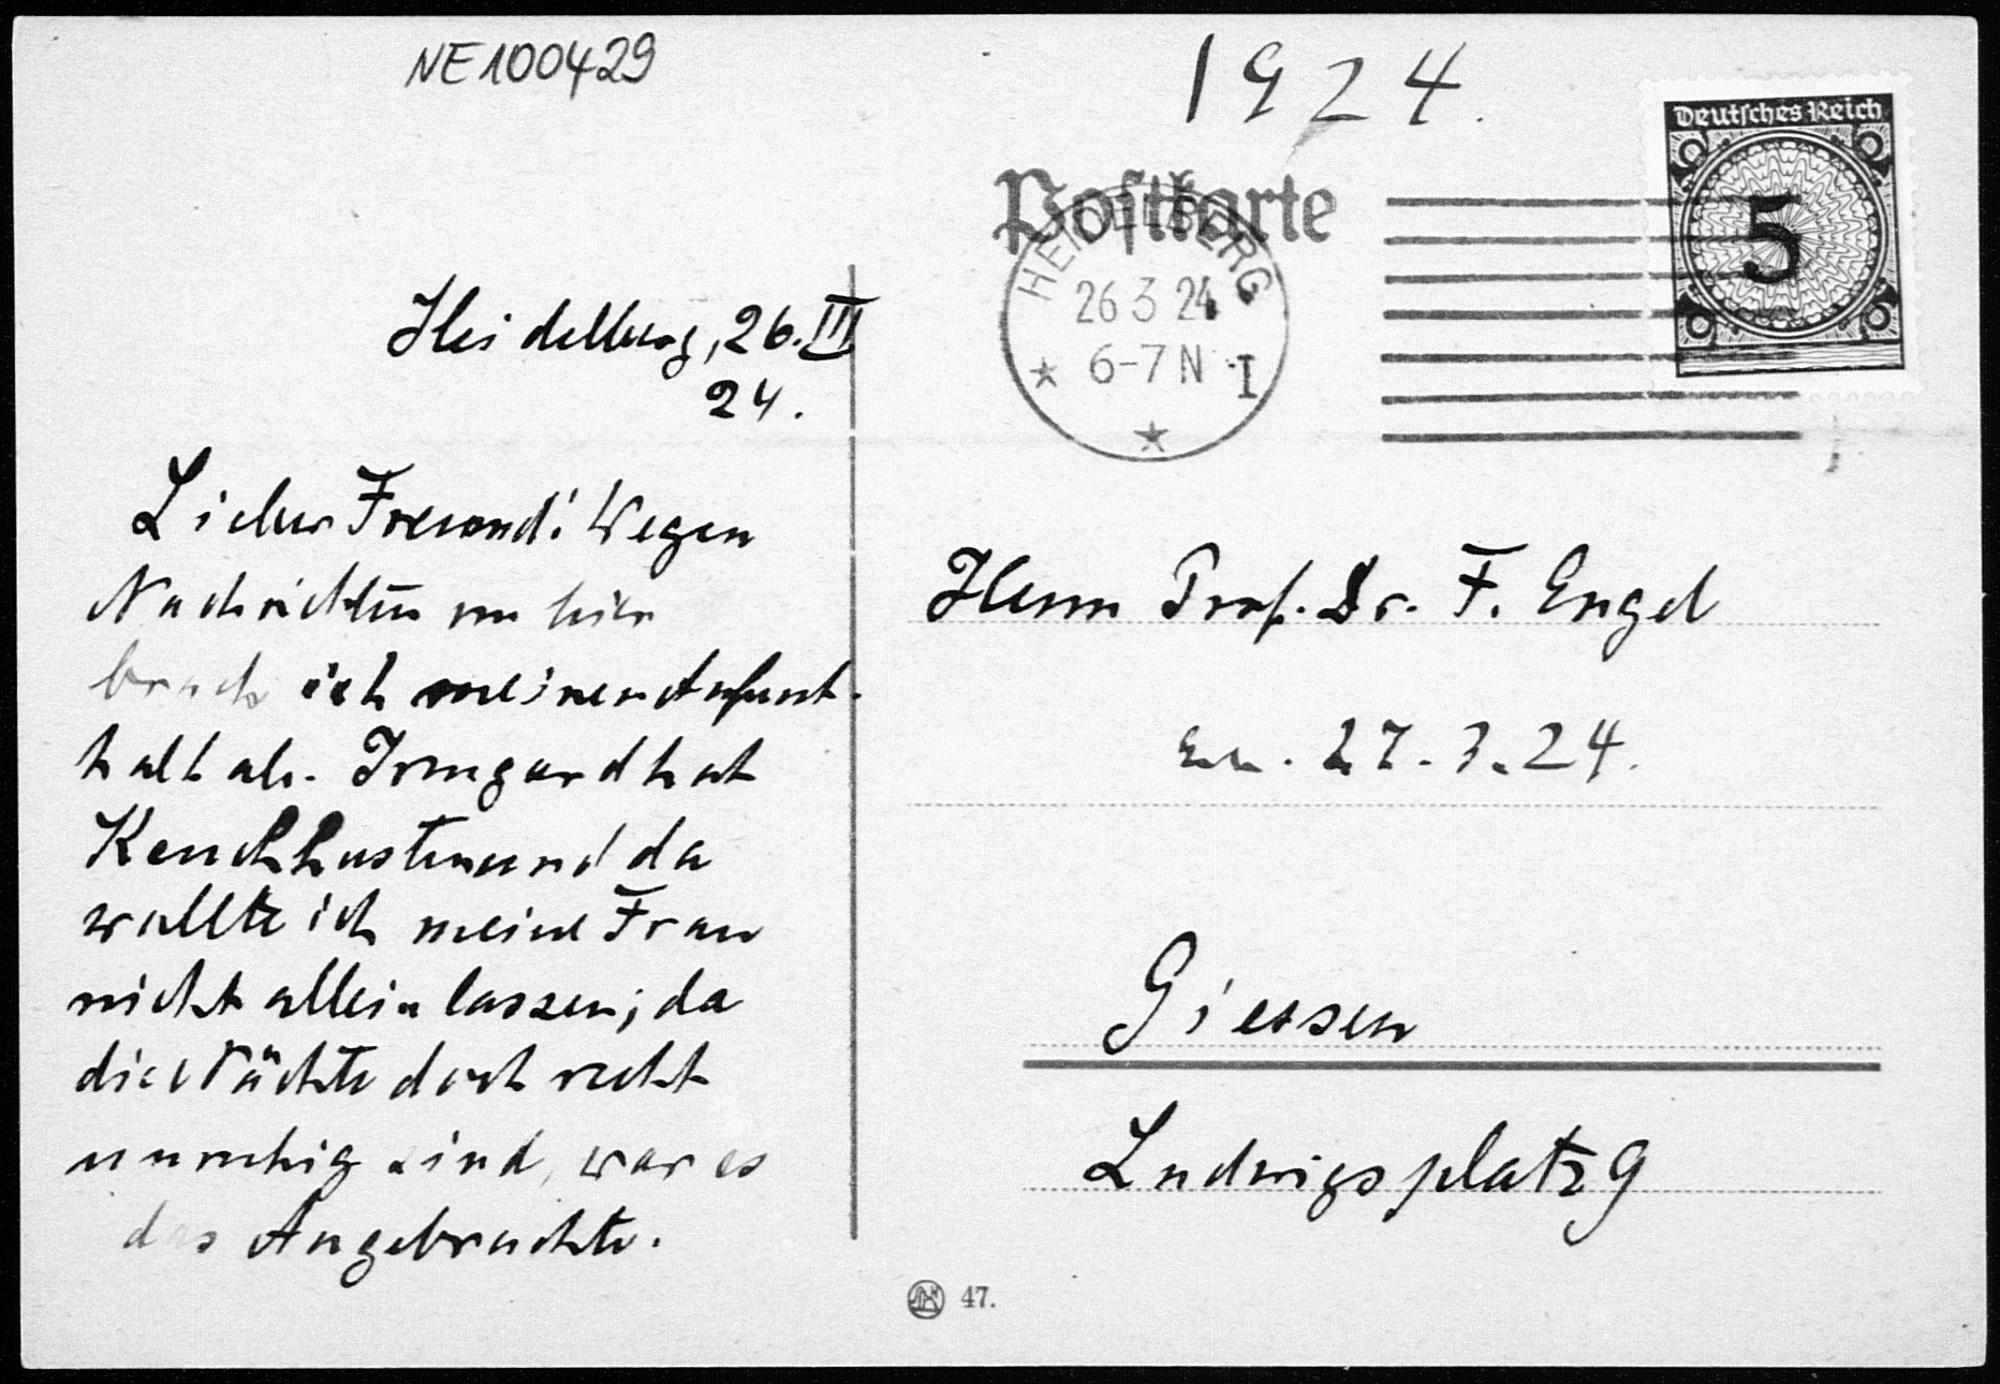 NE100429
1924.
Deutsches Reich
5
Postkarte
HEIDELBERG
26 3 24
6-7 N I
Heidelberg, 26. III
24.
Lieber Freund! Wegen
Nachrichten von hier
brach ich meinen Aufent-
halt ab. Irmgard hat
Keuchhusten und da
wollte ich meine Frau
nicht allein lassen; da
die Nächte doch recht
unruhig sind, war es
das Angebrachte.
Herrn Prof. Dr. F. Engel
27.3.24.
Giessen
Ludwigsplatz 9
47.